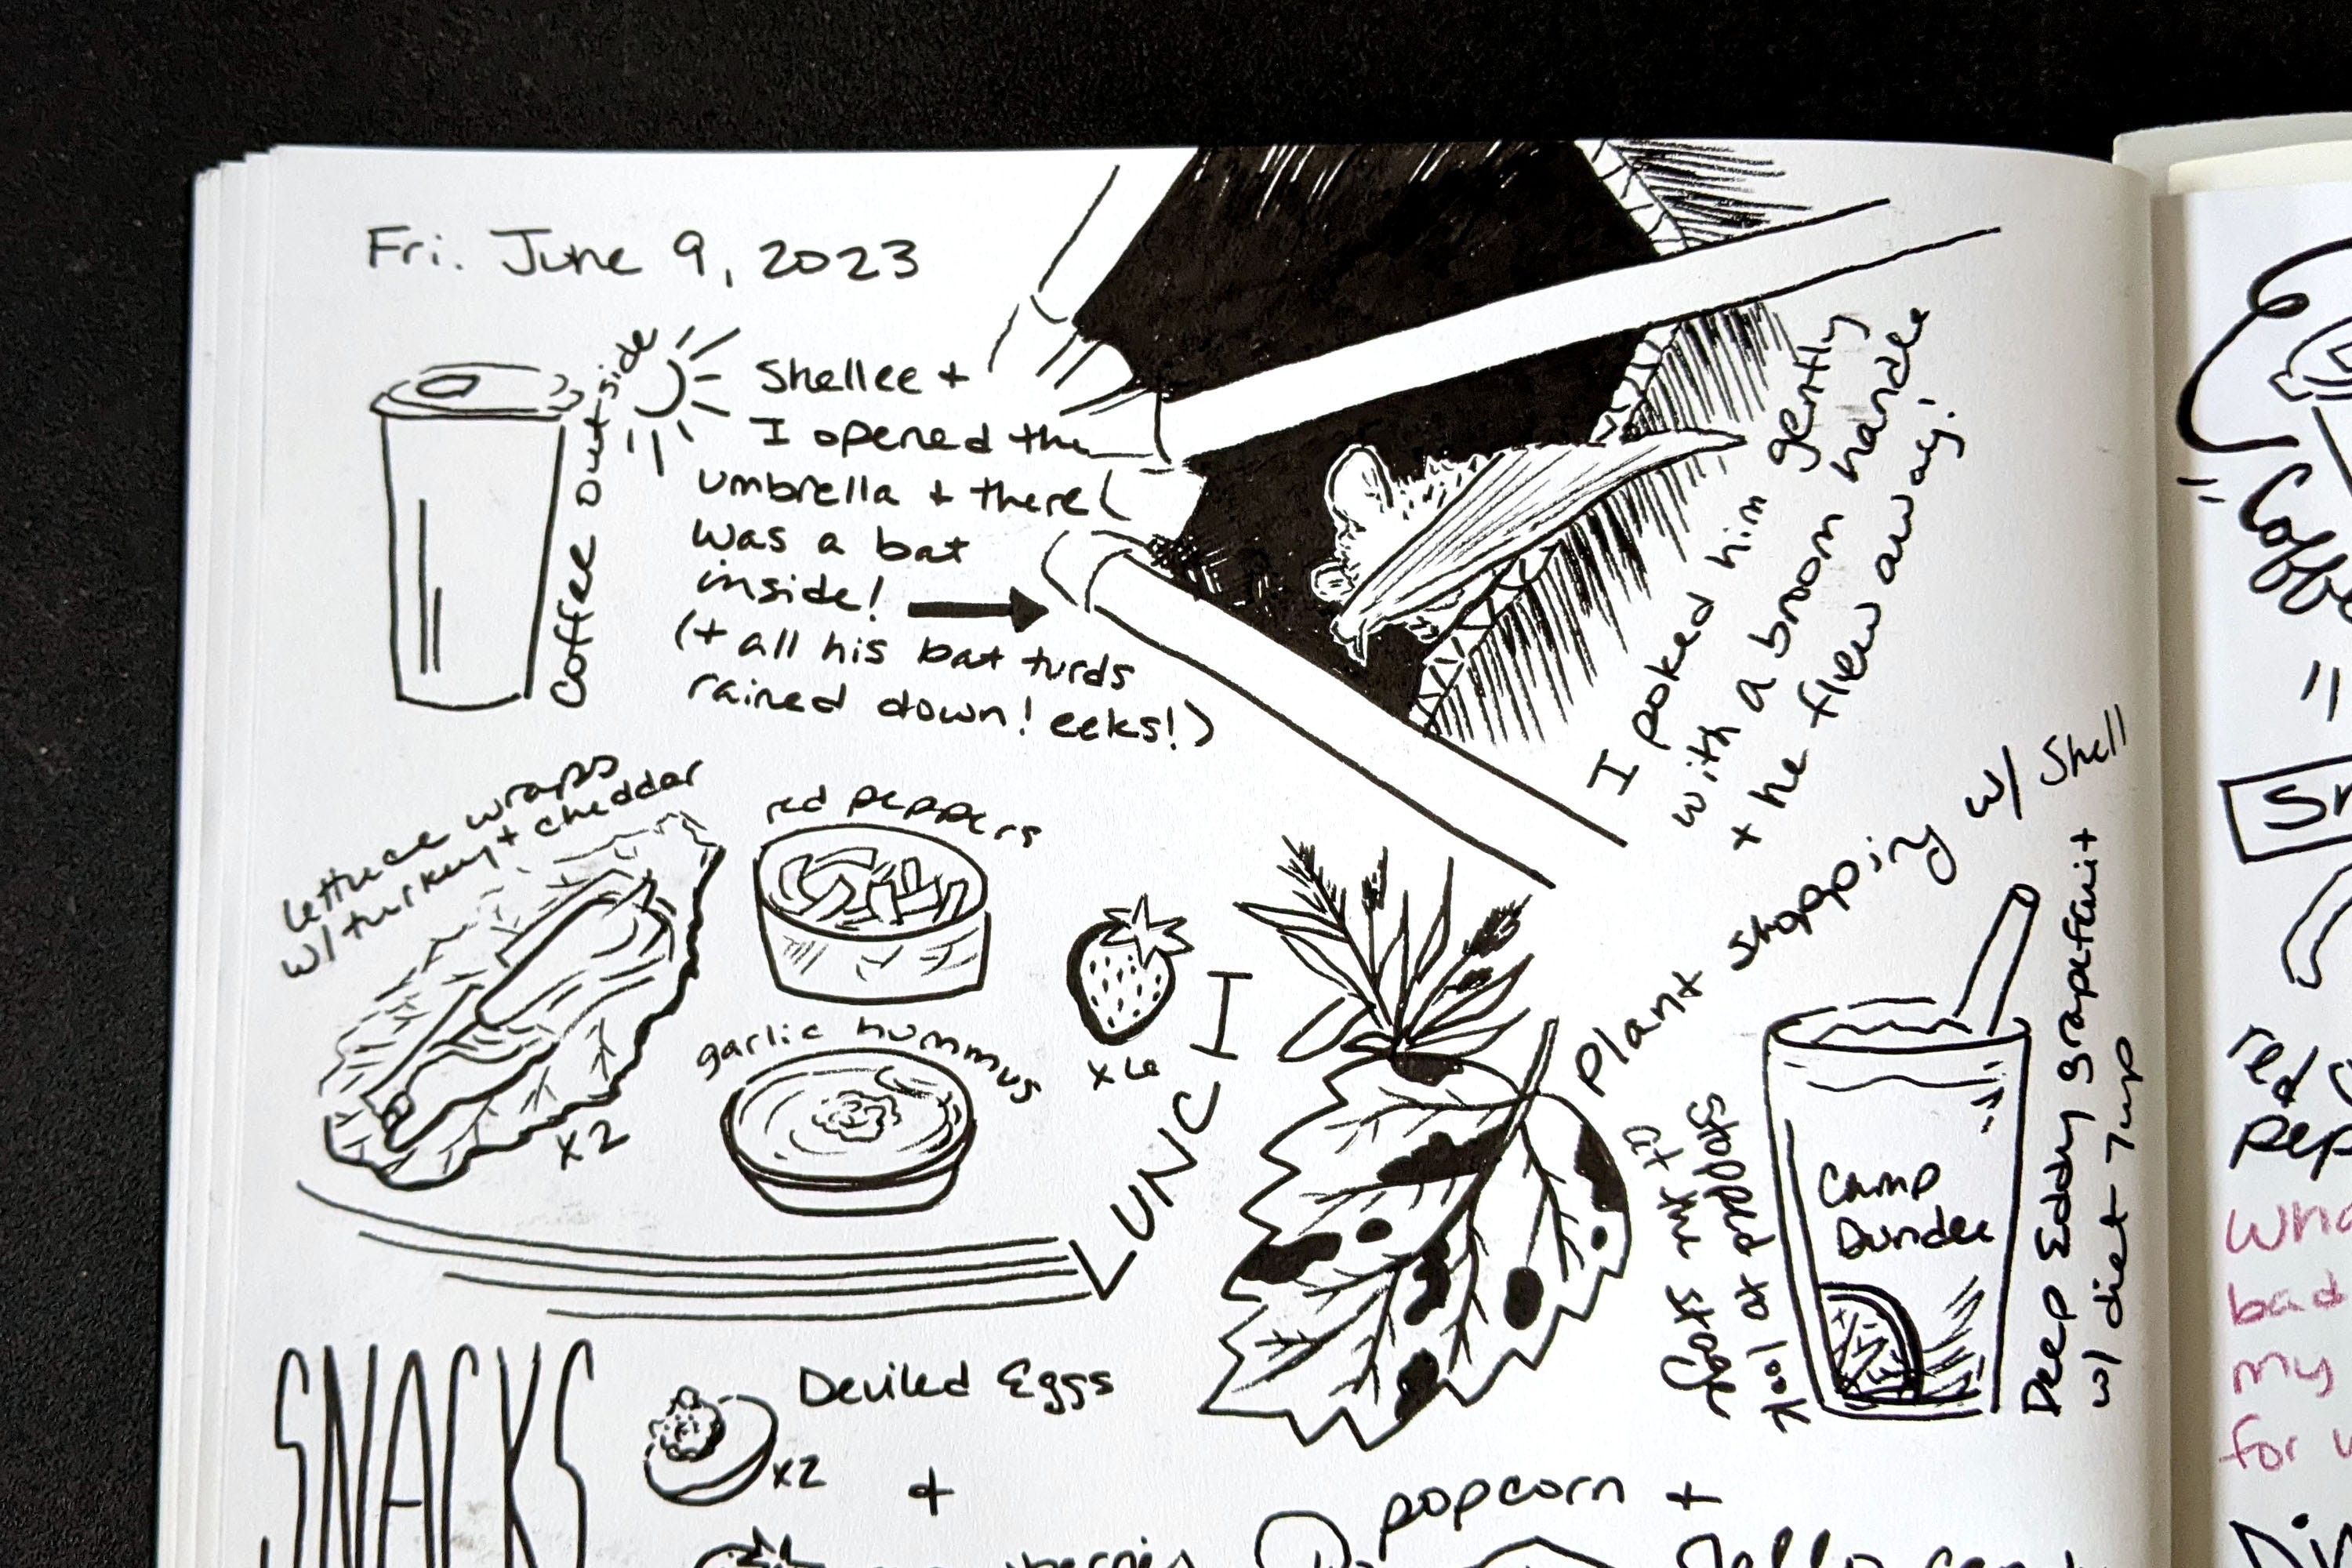 Fri. June 9, 2023
Coffee outside
Shellee +
I opened the
umbrella + there
was a bat
inside!
(+ all his bat turds
rained down! eeks!)
I poked him gently
with a broom handle
+ he flew away!
lettuce wraps
w/ turkey + cheddar
x2
red peppers
garlic hummus
x6
LUNCH
plant shopping w/ Shell
stopped to look at
Camp
Dundee
Deep Eddy grapefruit +
w/ diet 7up
SNACKS
Deviled Eggs
x2
+
popcorn +
Coffee
red
pep
bad
my
for